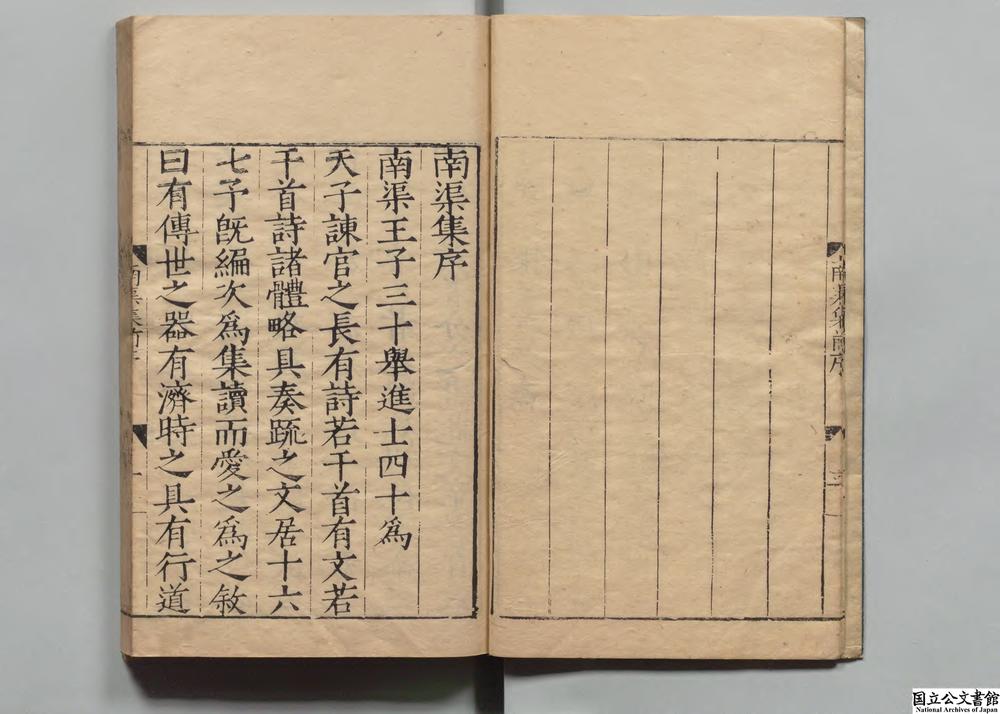 南渠集前序
三
南渠集序
南渠王子三十舉進士四十爲
天子諫官之長有詩若干首有文若
干首詩諸體略具奏疏之文居十六
七予旣編次爲集讀而愛之爲之敘
曰有傳世之器有濟時之具有行道
南渠集前序
一
国立公文書館
National Archives of Japan